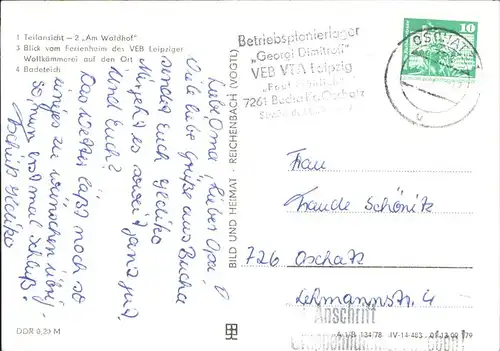 1 Teilansicht – 2 „Am Waldhof"
3 Blick vom Ferienheim des VEB Leipziger
Wollkämmerei auf den Ort
4 Badeteich
Liebe Oma, lieber Opa!
Viele liebe Grüße aus Bucha
sendet Euch
Mir geht es soweit ganz gut.
Und Euch?
Das Wetter läßt noch so
einiges zu wünschen übrig.
So, nun erst mal Schluß.
Tschüß
DDR 0,20 M
BILD UND HEIMAT · REICHENBACH (VOGTL)
Betriebspionierlager
„Georgi Dimitroff"
VEB VTA Leipzig
7261 Bucha Kr. Oschatz
OSCHATZ
10
Frau
Traude Schönitz
726 Oschatz
Lehmannstr. 4
Anschrift
A 1/B 134/78 IV-14-483